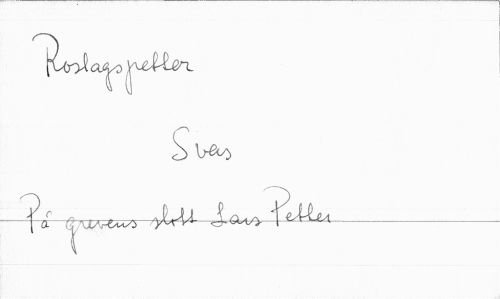 Roslagspetter
Svens
På grevens slott Lars Petter